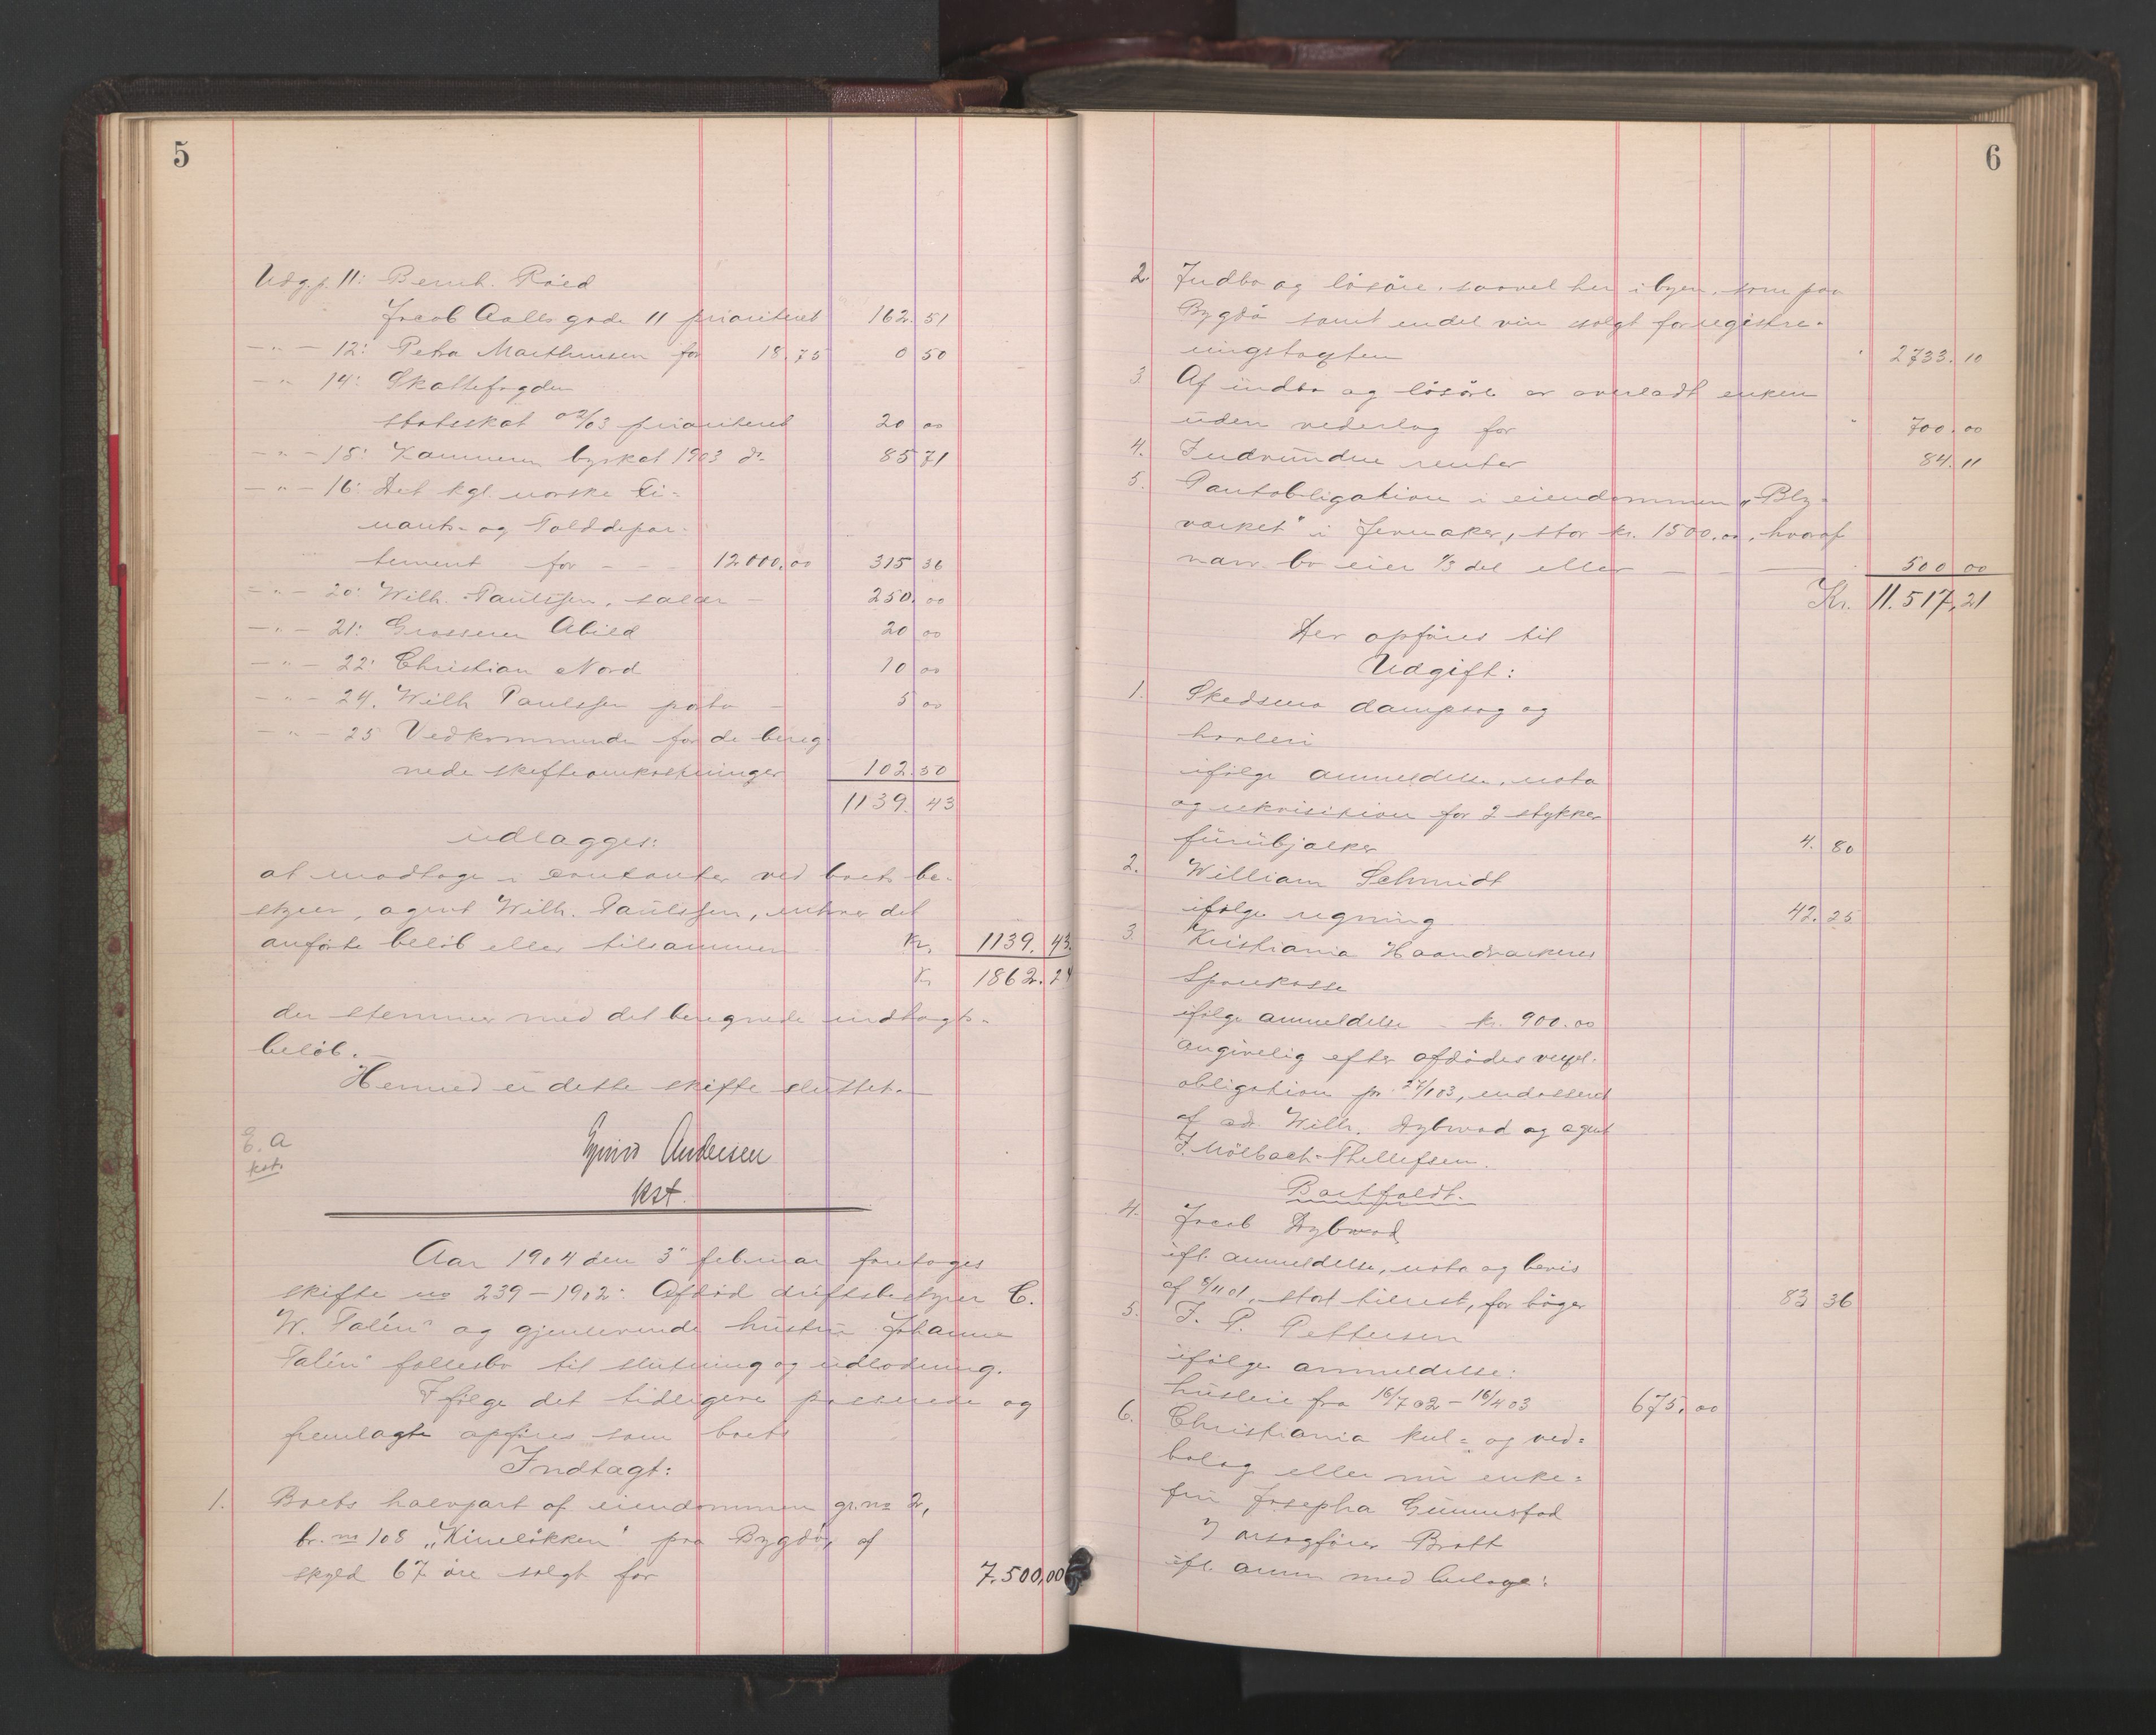 5
Udg.p. 11: Bernh. Röed
Jacob Aalls gade 11 prioriteret 162. 51
— " — 12: Petra Marthinsen for 18.75 0 50
— " 14: Skattefogden
statsskat 02/03 prioriteret 20 00
— " — 15: Kæmneren byskat 1903 do 85 71
— " — 16: Det kgl. norske Fi-
nants- og Tolddepar-
tement for - - - 12000.00 315 36
— " — 20: Wilh. Paulssen, salær — 250. 00
— " — 21: Grosserer Abild 20 00
— " — 22: Christian Nord 10 00
— " — 24. Wilh Paulssen porto — 5 00
— " — 25 Vedkommende for de bereg
nede skifteomkostninger 102. 50
1139. 43
udlægges:
at modtage i contanter ved boets be-
styrer, agent Wilh. Paulssen, enhver det
anförte belöb eller tilsammen Kr. 1139. 43.
Kr 1862. 24
der stemmer med det beregnede indtægts-
belöb. —
Hermed er dette skifte sluttet. —
E. a
kst.
Ejvind Andersen
kst.
Aar 1904 den 3" februar foretoges
skifte no 239 — 1902: Afdöd driftsbestyrer C.
W. Talén' og gjenlevende hustru Johanne
Talén' fællesbo til slutning og udlodning.
Ifölge det tidligere passerede og
fremlagte opföres som boets
Indtægt:
1. Boets halvpart af eiendommen gr. no 2,
br. no 108 „Kineløkken" paa Bygdö, af
skyld 67 øre solgt for 7.500,00
6
2. Indbo og lösöre, saavel her i byen, som paa
Bygdö samt endel vin solgt for registre-
ringstaxten " 2733. 10
3 Af indbo og lösöre er overladt enken
uden vederlag for " 700. 00
4. Indvundne renter 84. 11
5. Pantobligation i eiendommen „Bly-
værket" i Jevnaker, stor kr. 1500.00, hvoraf
nærv. bo eier 1/3 del eller — — — . 500 00
Kr. 11.517,21
Der opföres til
Udgift:
1. Skedsmo dampsag og
høvleri
ifölge anmeldelse, nota
og rekvisition for 2 stykker
furubjælker 4. 80
2. William Schmidt
ifölge regning 42. 25
3. Kristiania Haandværkeres
Sparekasse
ifölge anmeldelse - kr. 900.00
angivelig efter afdödes vexel-
obligation pr. 27/1 03, endosseret
af adv. Wilh. Dybwad og agent
J. Mölbach-Thellefsen.
Bortfaldt.
4. Jacob Dybwad
ifl. anmeldelse, nota og bevis
af 4/11 01, stort tilrest, for böger 83 36
5. J. P. Pettersen
ifölge anmeldelse:
husleie fra 16/7 02 — 16/4 03 675,00
6. Christiania kul- og ved-
bolag eller nu enke-
fru Josepha Gunnestad
v/ orsagförer Bratt
ifl. anm med bilage: